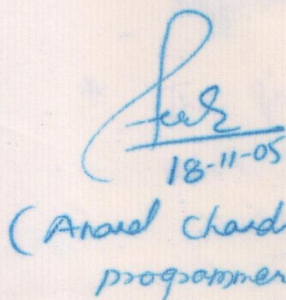 18-11-05
(Anand Chand
programmer